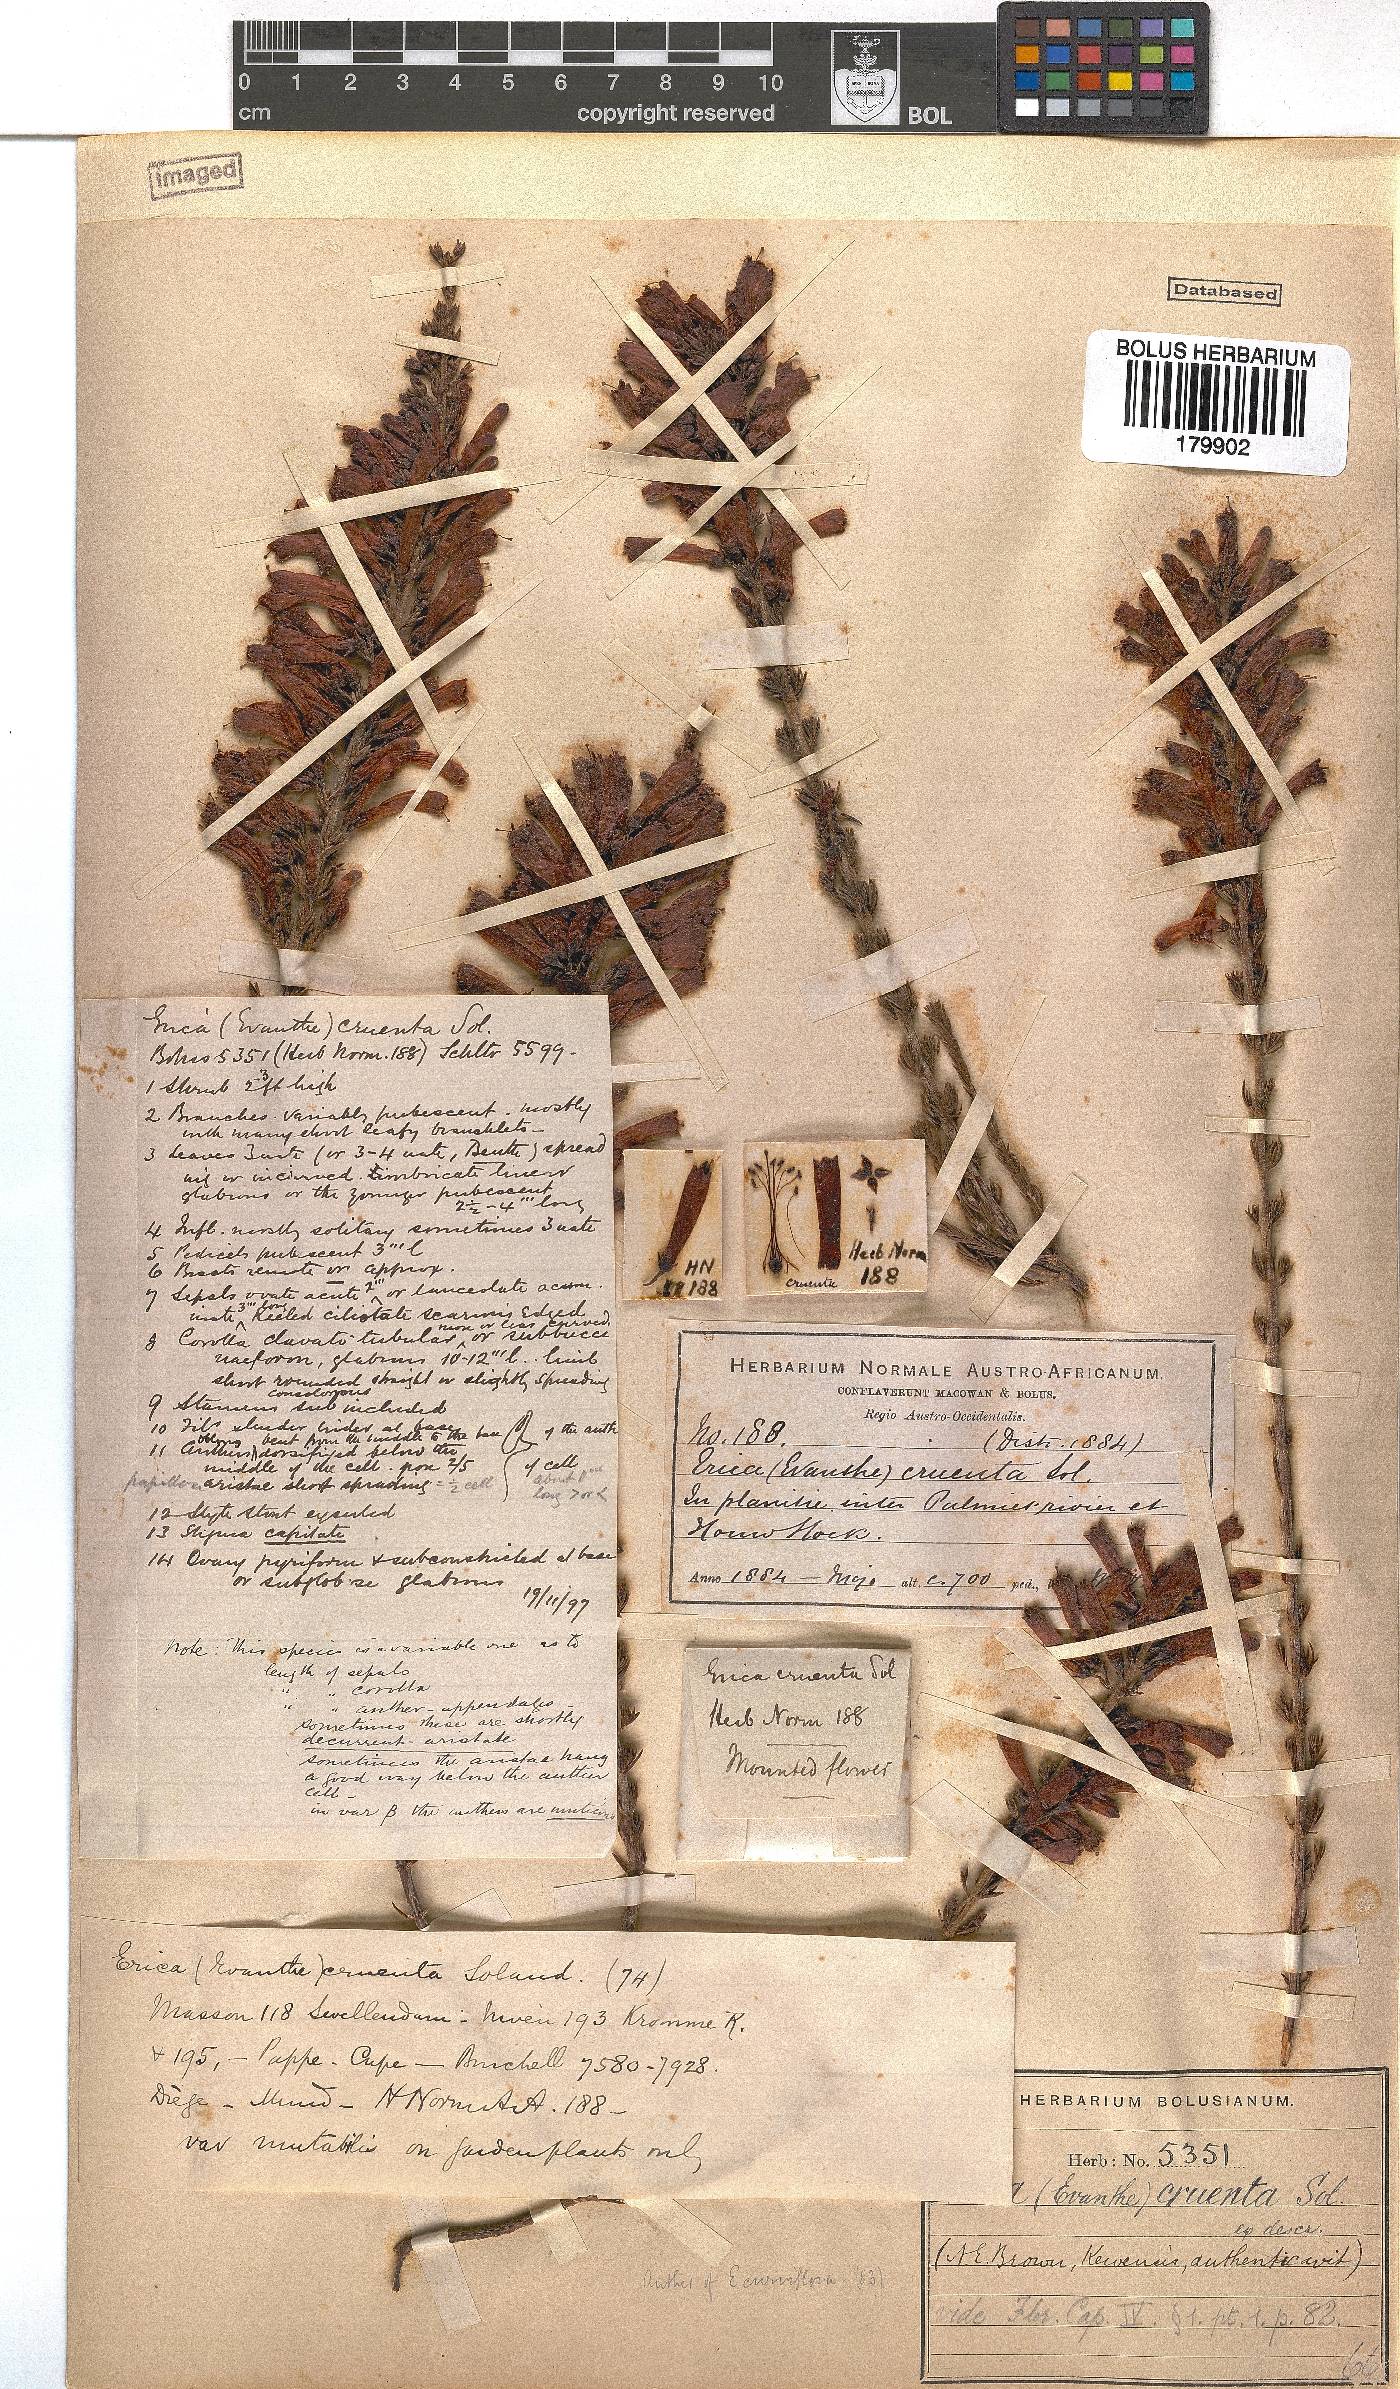 0 1 2 3 4 5 6 7 8 9 10
cm copyright reserved BOL
imaged
Databased
BOLUS HERBARIUM
179902
Erica (Evanthe) cruenta Sol.
Bolus 5351 (Herb Norm. 188) Schltr 5599 -
1 Shrub 2-3 ft high
2 Branches variably pubescent - mostly
with many short leafy branchlets -
3 Leaves 3 nate (or 3-4 nate, Benth) spread
ing or incurved imbricate linear
glabrous or the younger pubescent
2½-4''' long
4 Infl. mostly solitary sometimes 3 nate
5 Pedicels pubescent 3''' l
6 Bracts remote or approx.
7 Sepals ovate acute 2''' or lanceolate acum
inate 3''' long keeled ciliolate scarious edged
8 Corolla clavato-tubular more or less curved, or subbucci
naeform, glabrous 10-12''' l. limb
short rounded straight or slightly spreading
concolorous
9 Stamens sub included
10 Fil. slender wider at base
bent from the middle to the base of the anth
11 Anthers oblong dorsifixed below the
middle of the cell. pore 2/5 of cell
papillose aristae short spreading = ½ cell
about 1'''
long > or <
12 Style short exserted
13 Stigma capitate
14 Ovary pyriform & subconstricted at base
or subglobose glabrous
19/11/97
Note: This species is a variable one as to
length of sepals
" " corolla
" " anther-appendages
sometimes these are shortly
decurrent-aristate
sometimes the aristae hang
a good way below the anther
cell -
in var β the anthers are muticous
HN
188
cruenta
Herb Norm
188
HERBARIUM NORMALE AUSTRO-AFRICANUM.
CONFLAVERUNT MACOWAN & BOLUS.
Regio Austro-Occidentalis.
No. 188. (Distr. 1884)
Erica (Evanthe) cruenta Sol.
In planitie inter Palmiet rivier et
Houw Hoek.
Anno 1884 - Majo alt. c. 700 ped.,
Erica cruenta Sol
Herb Norm 188
Mounted flower
Erica (Evanthe) cruenta Soland. (74)
Masson 118 Swellendam - Niven 193 Kromme R.
& 195, - Pappe - Cape - Burchell 7580-7928.
Diège - Mund - H Norm A.A. 188 -
var mutabilis on garden plants only
HERBARIUM BOLUSIANUM.
Herb: No. 5351
a (Evanthe) cruenta Sol.
ex descr.
(N.E. Brown, Kewensis, authentic. vit)
vide Flor. Cap. IV. § 1. pt. 1. p. 82.
Anther of E curviflora